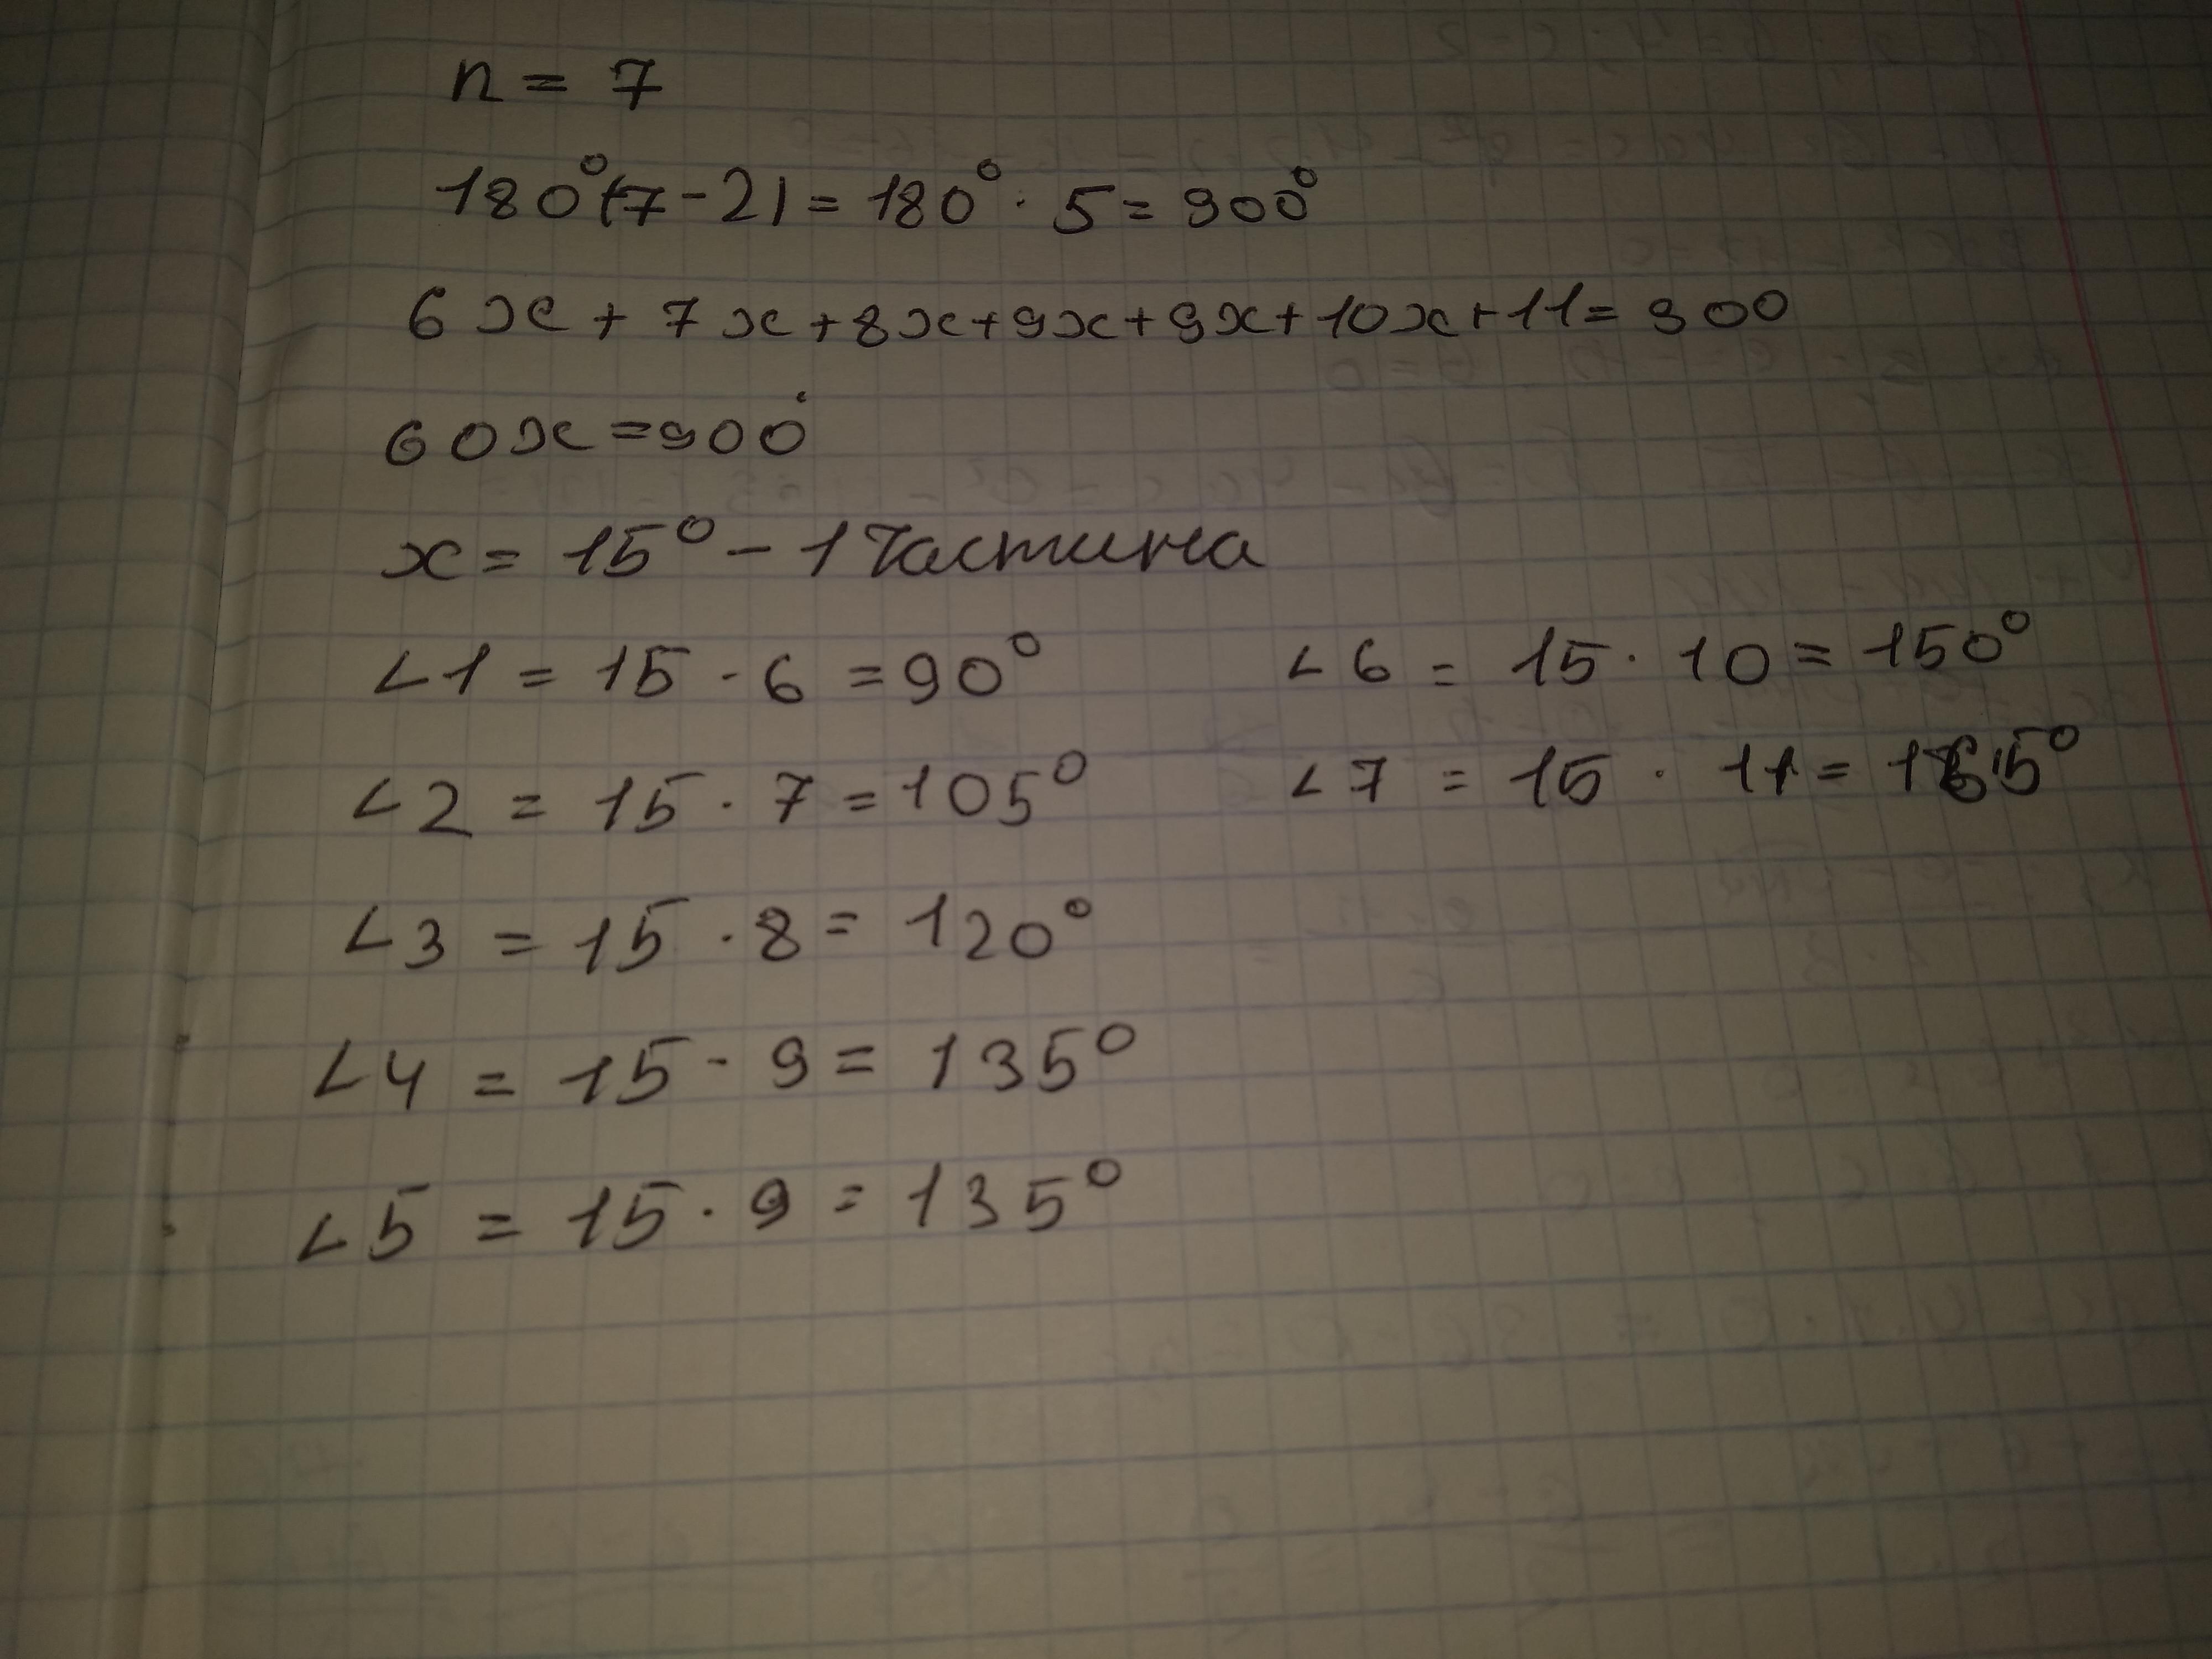 n = 7
180°(7-2) = 180° · 5 = 900°
6x + 7x + 8x + 9x + 9x + 10x + 11 = 900
60x = 900°
x = 15° - 1 частина
∠1 = 15 · 6 = 90°
∠2 = 15 · 7 = 105°
∠3 = 15 · 8 = 120°
∠4 = 15 · 9 = 135°
∠5 = 15 · 9 = 135°
∠6 = 15 · 10 = 150°
∠7 = 15 · 11 = 165°